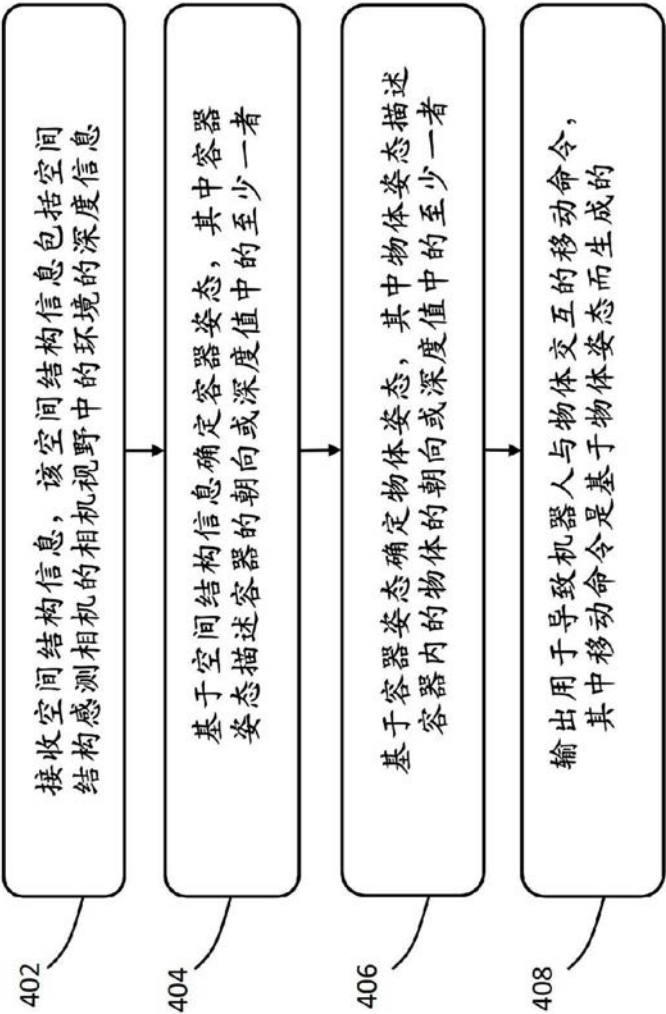 接收空间结构信息，该空间结构信息包括空间
结构感测相机的相机视野中的环境的深度信息
402
基于空间结构信息确定容器姿态，其中容器
姿态描述容器的朝向或深度值中的至少一者
404
基于容器姿态确定物体姿态，其中物体姿态描述
容器内的物体的朝向或深度值中的至少一者
406
输出用于导致机器人与物体交互的移动命令，
其中移动命令是基于物体姿态而生成的
408